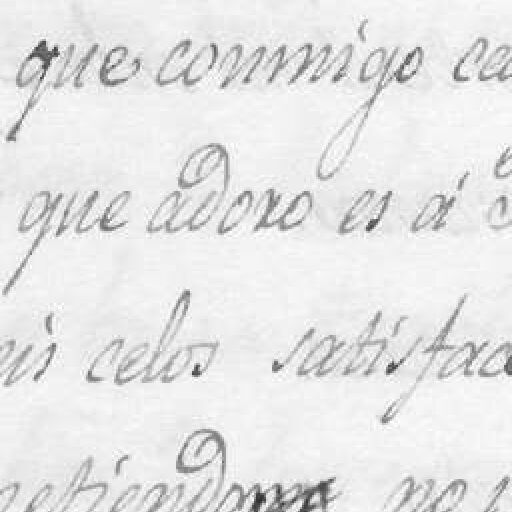 que conmigo ca
que adoro es á
eis celos satisfac
metiendo no